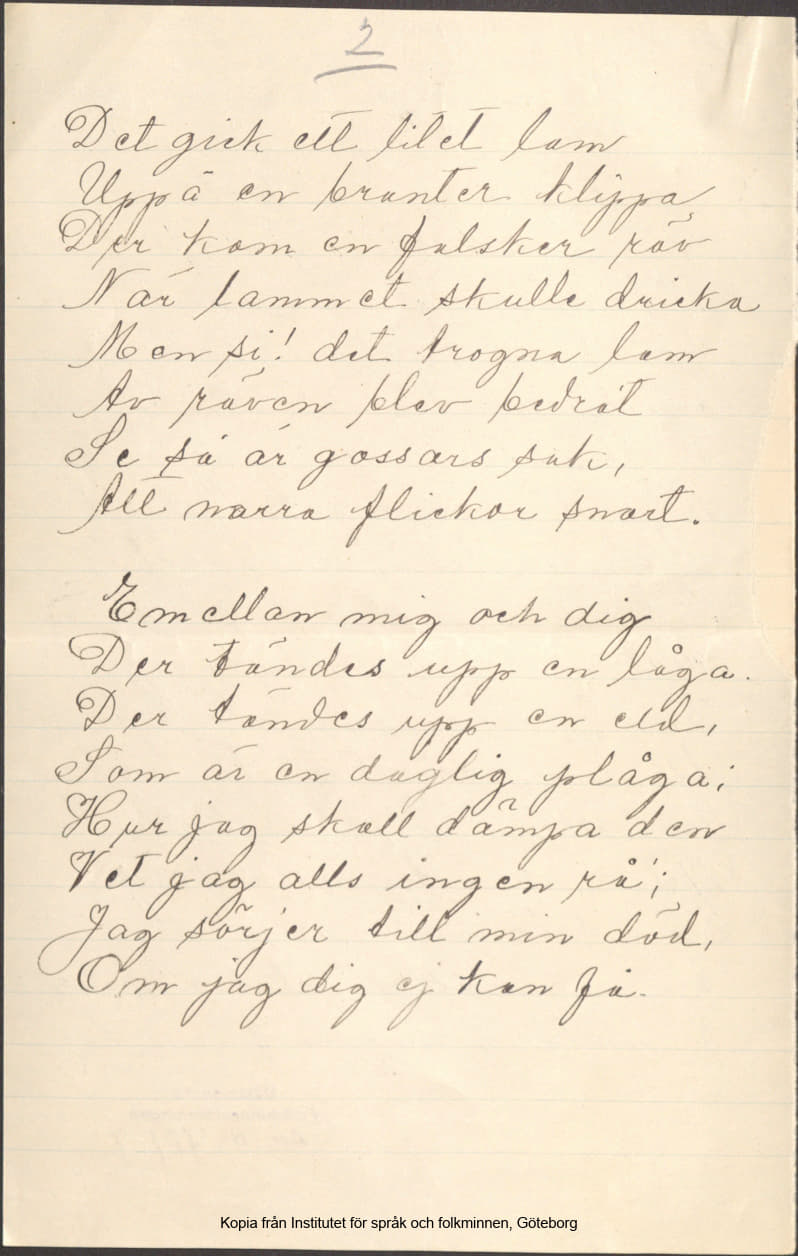 2
Det gick ett litet lam
Uppå en branter klippa,
Der kom en falsker räv
När lammet skulle dricka
Men si! det trogna lam
Av räven blev bedrat
Se så är gossars sak,
Att narra flickor snart.
Emellan mig och dig
Der tändes upp en låga.
Der tändes upp en eld,
Som är en daglig plåga;
Hur jag skall dämpa den
Vet jag alls ingen rå';
Jag sörjer till min död,
Om jag dig ej kan få.
Kopia från Institutet för språk och folkminnen, Göteborg